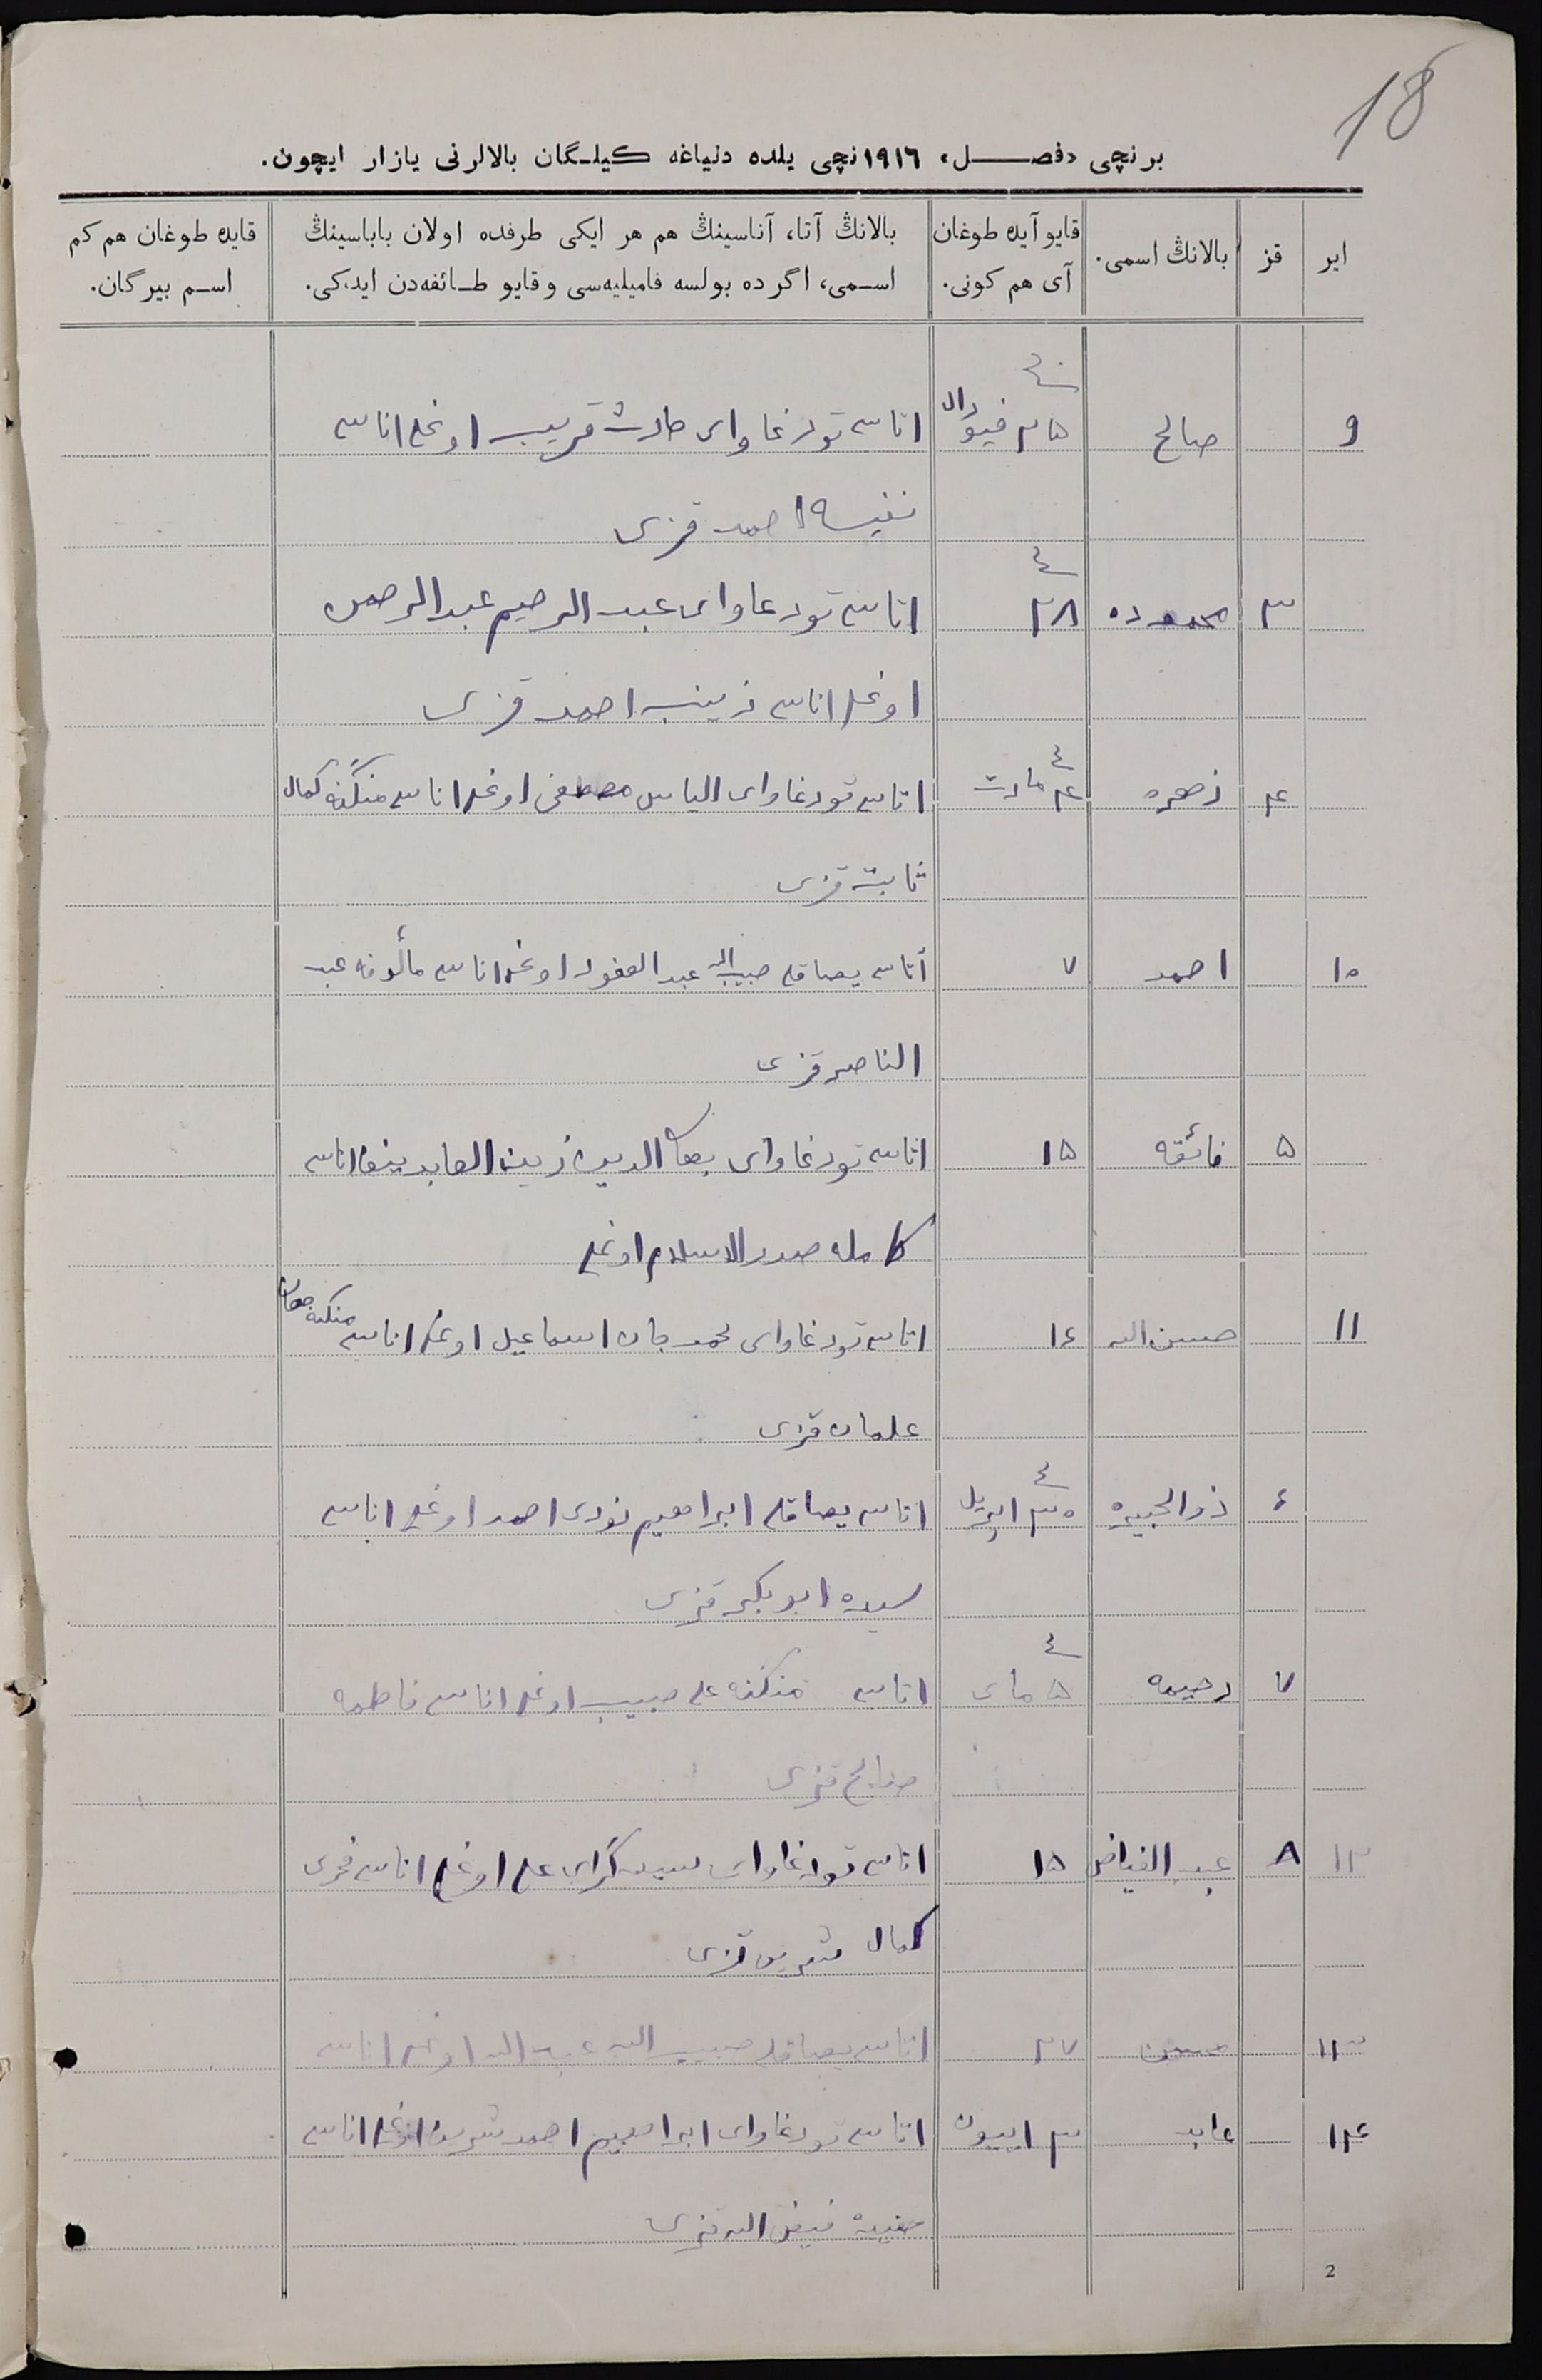 18
برنچی «فصل» ١٩١٦نچی یلده دنیاغه کیلگان بالالرنی یازار ایچون.
ایر
قز
بالانڭ اسمی.
قایو آیده طوغان آی هم کونی.
بالانڭ آتا، آناسینڭ هم هر ایکی طرفده اولان باباسینڭ اسمی، اگرده بولسه فامیلیه‌سی و قایو طائفه‌دن ایدکی.
قایده طوغان هم کم اسم بیرگان.
٩ صالح ٢٥ فیورال اتاسی تورغاوای حارث قریب اوغلی اناسی
نفیسه احمد قزی
٣ محموده ٢٨ اتاسی تورغاوای عبد الرحیم عبدالرحمن
اوغلی اناسی زینب احمد قزی
٤ زهره ٤ مارت اتاسی تورغاوای الیاس مصطفی اوغلی اناسی منگنه کمال
ثابت قزی
١٠ احمد ٧ أتاسی حبیب الله عبد الغفور اوغلی اناسی عبد
الناصر قزی
٥ فائقه ١٥ اتاسی تورغاوای بهاء الدین زین العابدین اناسی
کامله صدر الاسلام اوغلی
١١ حسن الله ١٦ اتاسی تورغاوای محمد جان اسماعیل اوغلی اناسی
علمان قزی
٦ ٣٠ اپریل اتاسی ابراهیم نوری احمد اوغلی اناسی
سیده ابو بکر قزی
٧ رحیمه ٥ مای اتاسی منگنه علی حبیب اوغلی اناسی فاطمه
صالح قزی
١٢ ٨ عبد الفیاض ١٥ اتاسی تورغاوای سید گرای علی اوغلی اناسی
کمال قزی
١٣ حسن ٢٧ اتاسی حبیب الله عبد الله اوغلی اناسی
١٤ عابد ٣ اییون اتاسی تورغاوای ابراهیم احمد اوغلی اناسی
صفیه فیض الله قزی
2